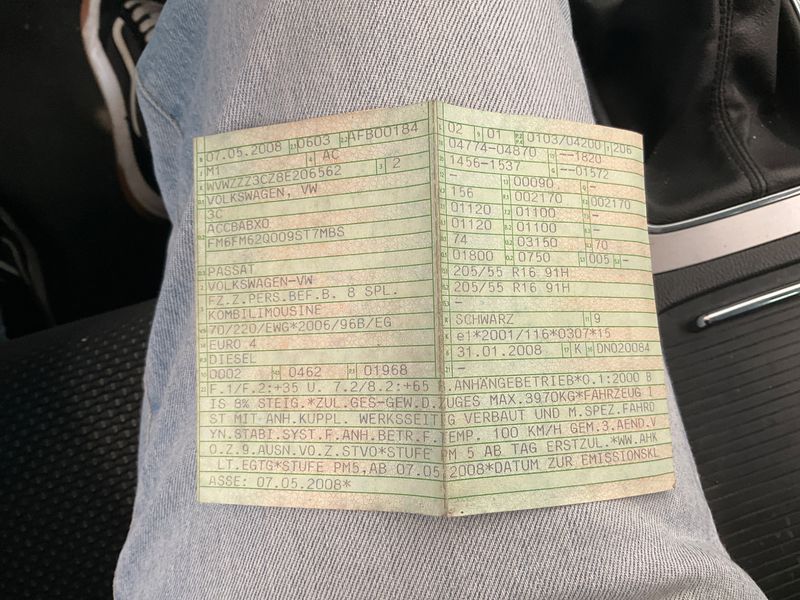 07.05.2008 0603 AFB00184
M1 AC
WVWZZZ3CZ8E206562 2
VOLKSWAGEN, VW
3C
ACCBABX0
FM6FM62Q009ST7MBS
PASSAT
VOLKSWAGEN-VW
FZ.Z.PERS.BEF.B. 8 SPL.
KOMBILIMOUSINE
70/220/EWG*2006/96B/EG
EURO 4
DIESEL
0002 0462 01968
02 01 0103/04200 206
04774-04870 --1820
1456-1537 --01572
- 00090 -
156 002170 002170
01120 01100 -
01120 01100 -
74 03150 70
01800 0750 005 -
205/55 R16 91H
205/55 R16 91H
-
SCHWARZ 9
e1*2001/116*0307*15
31.01.2008 K DN020084
-
F.1/F.2:+35 U. 7.2/8.2:+65 B.ANHÄNGEBETRIEB*O.1:2000 B
IS 8% STEIG.*ZUL.GES-GEW.D.ZUGES MAX.3970KG*FAHRZEUG I
ST MIT ANH.KUPPL. WERKSSEITIG VERBAUT UND M.SPEZ.FAHRD
YN.STABI.SYST.F.ANH.BETR.F.TEMP. 100 KM/H GEM.3.AEND.V
O.Z.9.AUSN.VO.Z.STVO*STUFE PM 5 AB TAG ERSTZUL.*WW.AHK
LT.EGTG*STUFE PM5,AB 07.05.2008*DATUM ZUR EMISSIONSKL
ASSE: 07.05.2008*